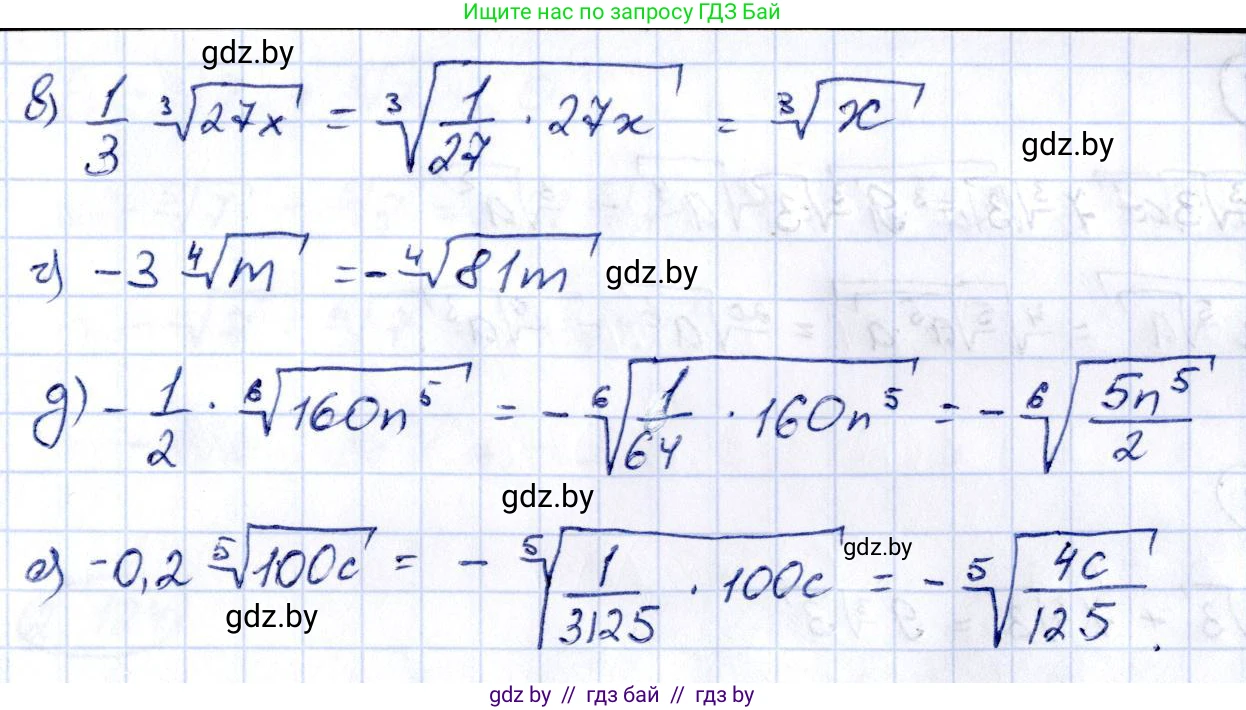 Ищите нас по запросу ГДЗ Бай
gdz.by
в) 1/3 ∛(27x) = ∛(1/27 · 27x) = ∛x
gdz.by
г) -3 ∜m = - ∜(81m)
gdz.by
д) - 1/2 · ⁶√(160n⁵) = - ⁶√(1/64 · 160n⁵) = - ⁶√(5n⁵/2)
gdz.by
е) -0,2 ⁵√(100c) = - ⁵√(1/3125 · 100c) = - ⁵√(4c/125).
gdz.by
gdz.by
gdz by // гдз бай // гдз by